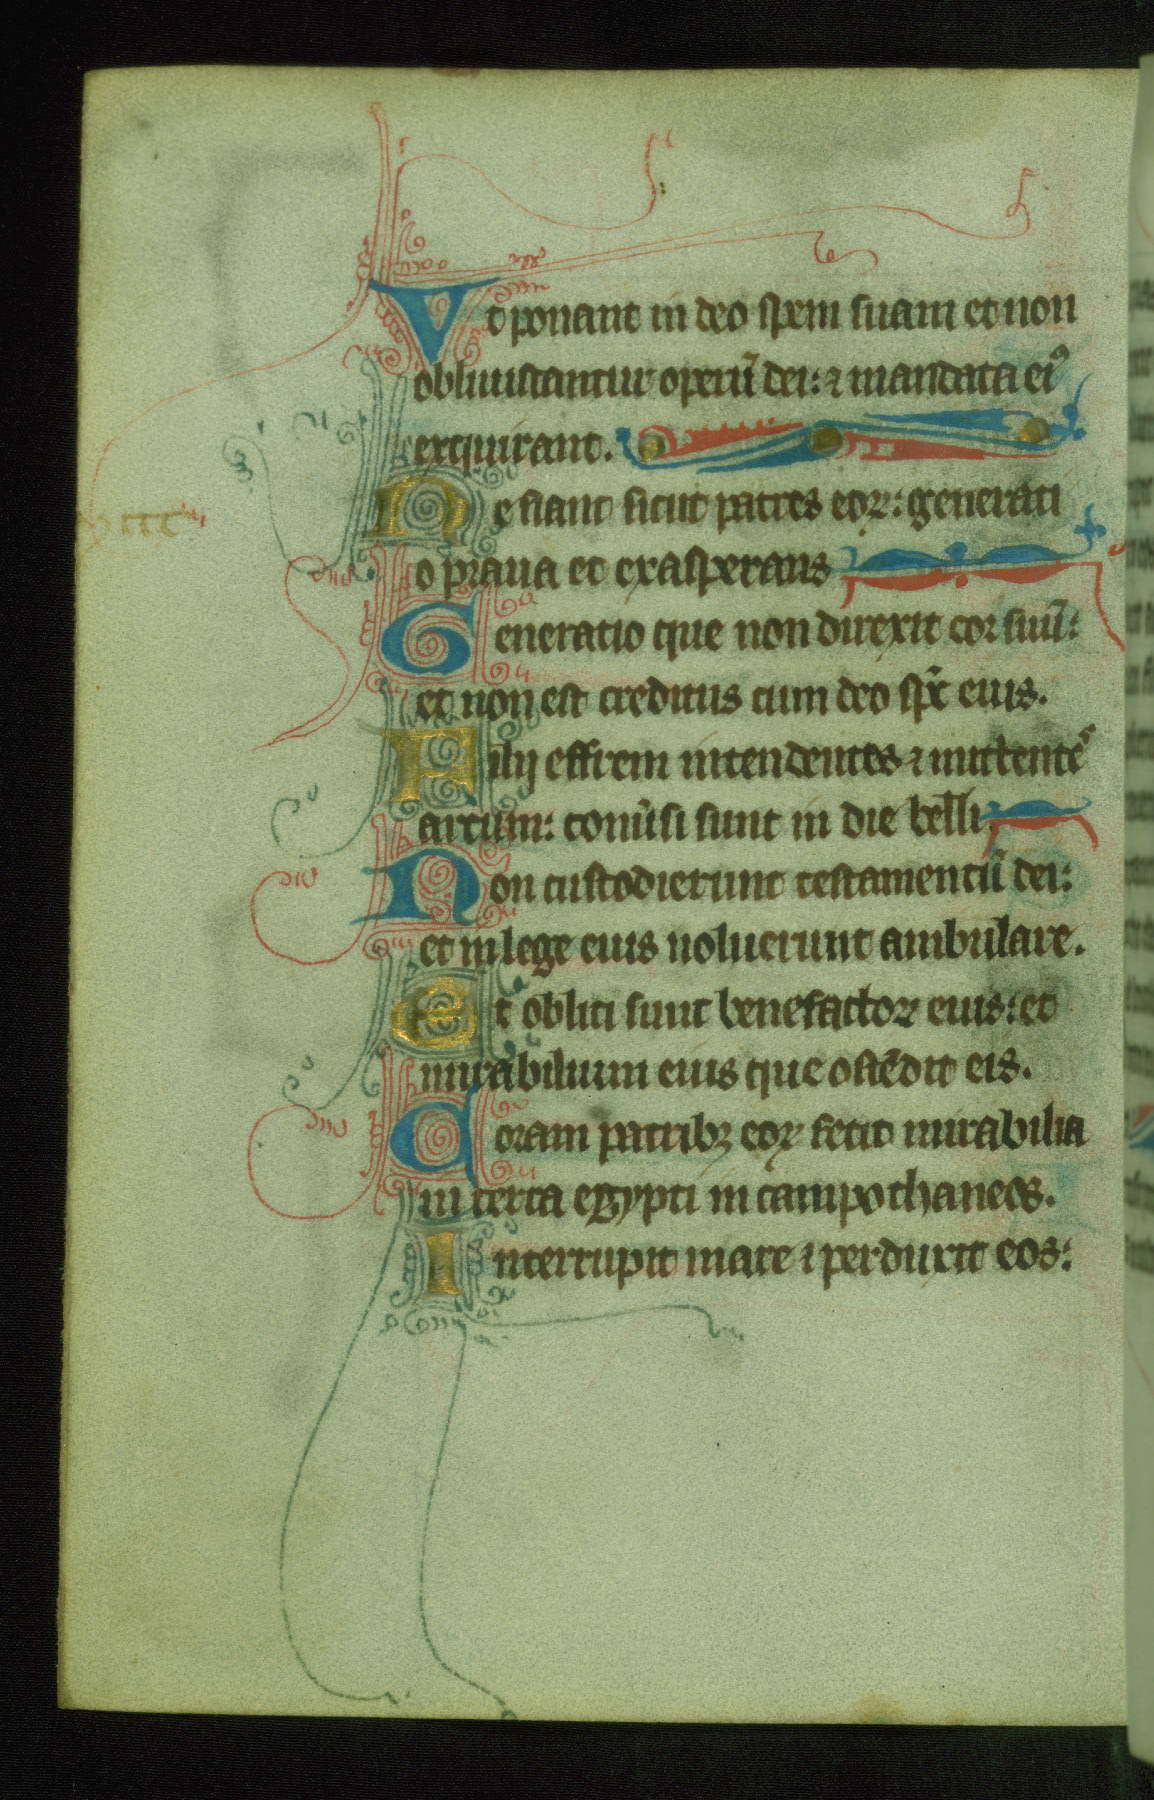 Vt ponant in deo spem suam et non
obliuiscantur operũ dei: ⁊ mandata eiꝰ
exquirant.
Ne fiant sicut patres eoꝝ: generati
o praua et exasperans
Generatio que non direxit cor suũ:
et non est creditus cum deo sp̃c eius.
Filij effrem intendentes ⁊ mittentes
arcum: conũsi sunt in die belli.
Non custodierunt testamentũ dei:
et in lege eius noluerunt ambulare.
Et obliti sunt benefactoꝝ eius: et
mirabilium eius que ostẽdit eis.
Coram patribꝫ eoꝝ fecit mirabilia
in terra egypti in campo thaneos.
Interrupit mare ⁊ perduxit eos: